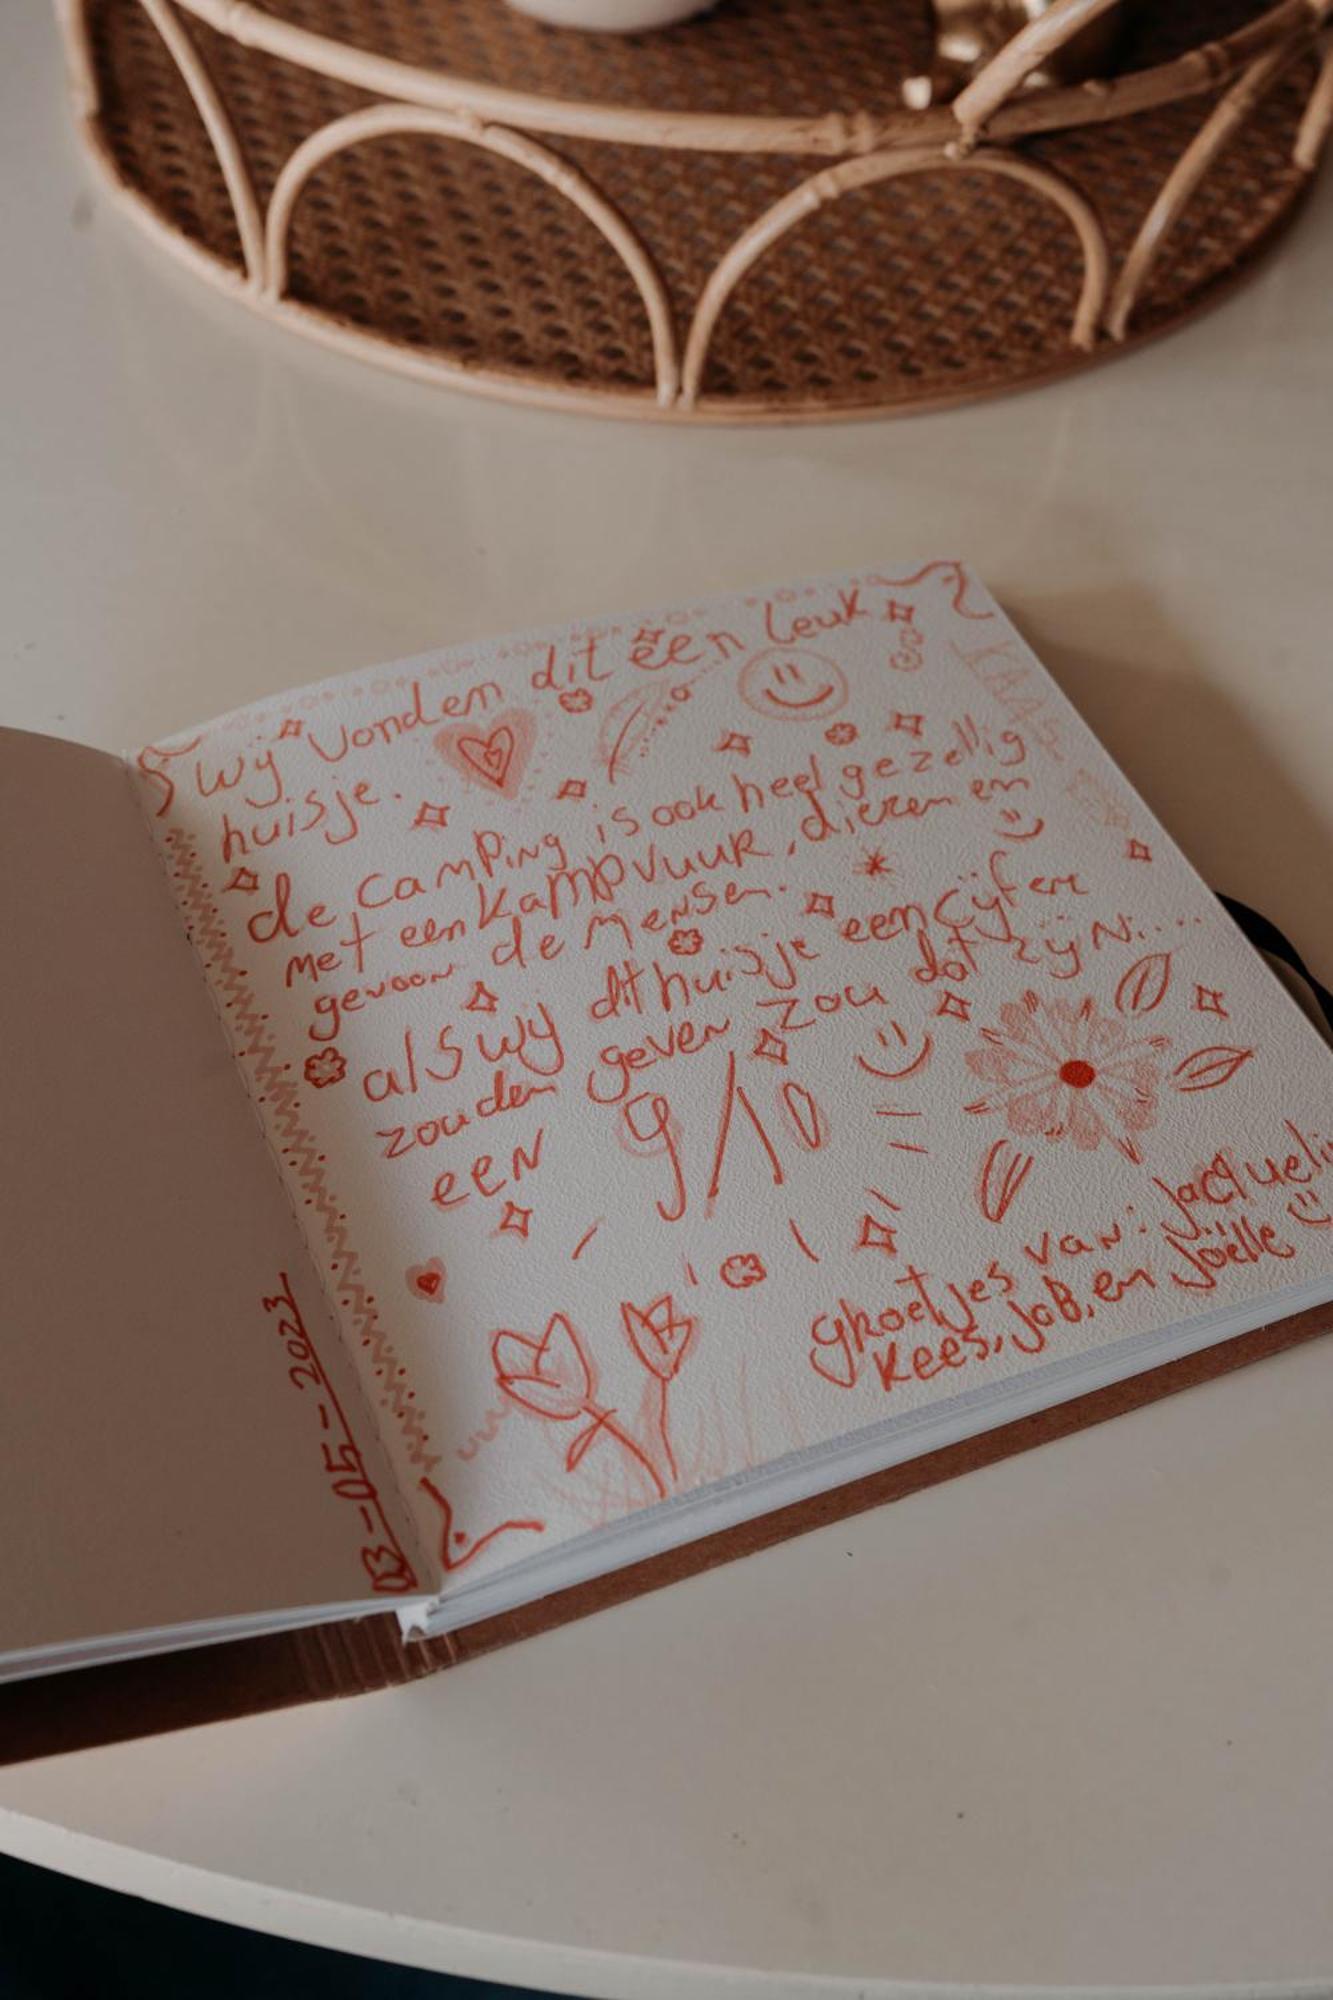 wij vonden dit een leuk
huisje.
de camping is ook heel gezellig
met een kampvuur, dieren en
gewoon de mensen.
als wij dit huisje een cijfer
zouden geven zou dat zijn....
een 9/10
groetjes van: Jacqueli
Kees, Job, en Joëlle
03-05-2023
KAAS